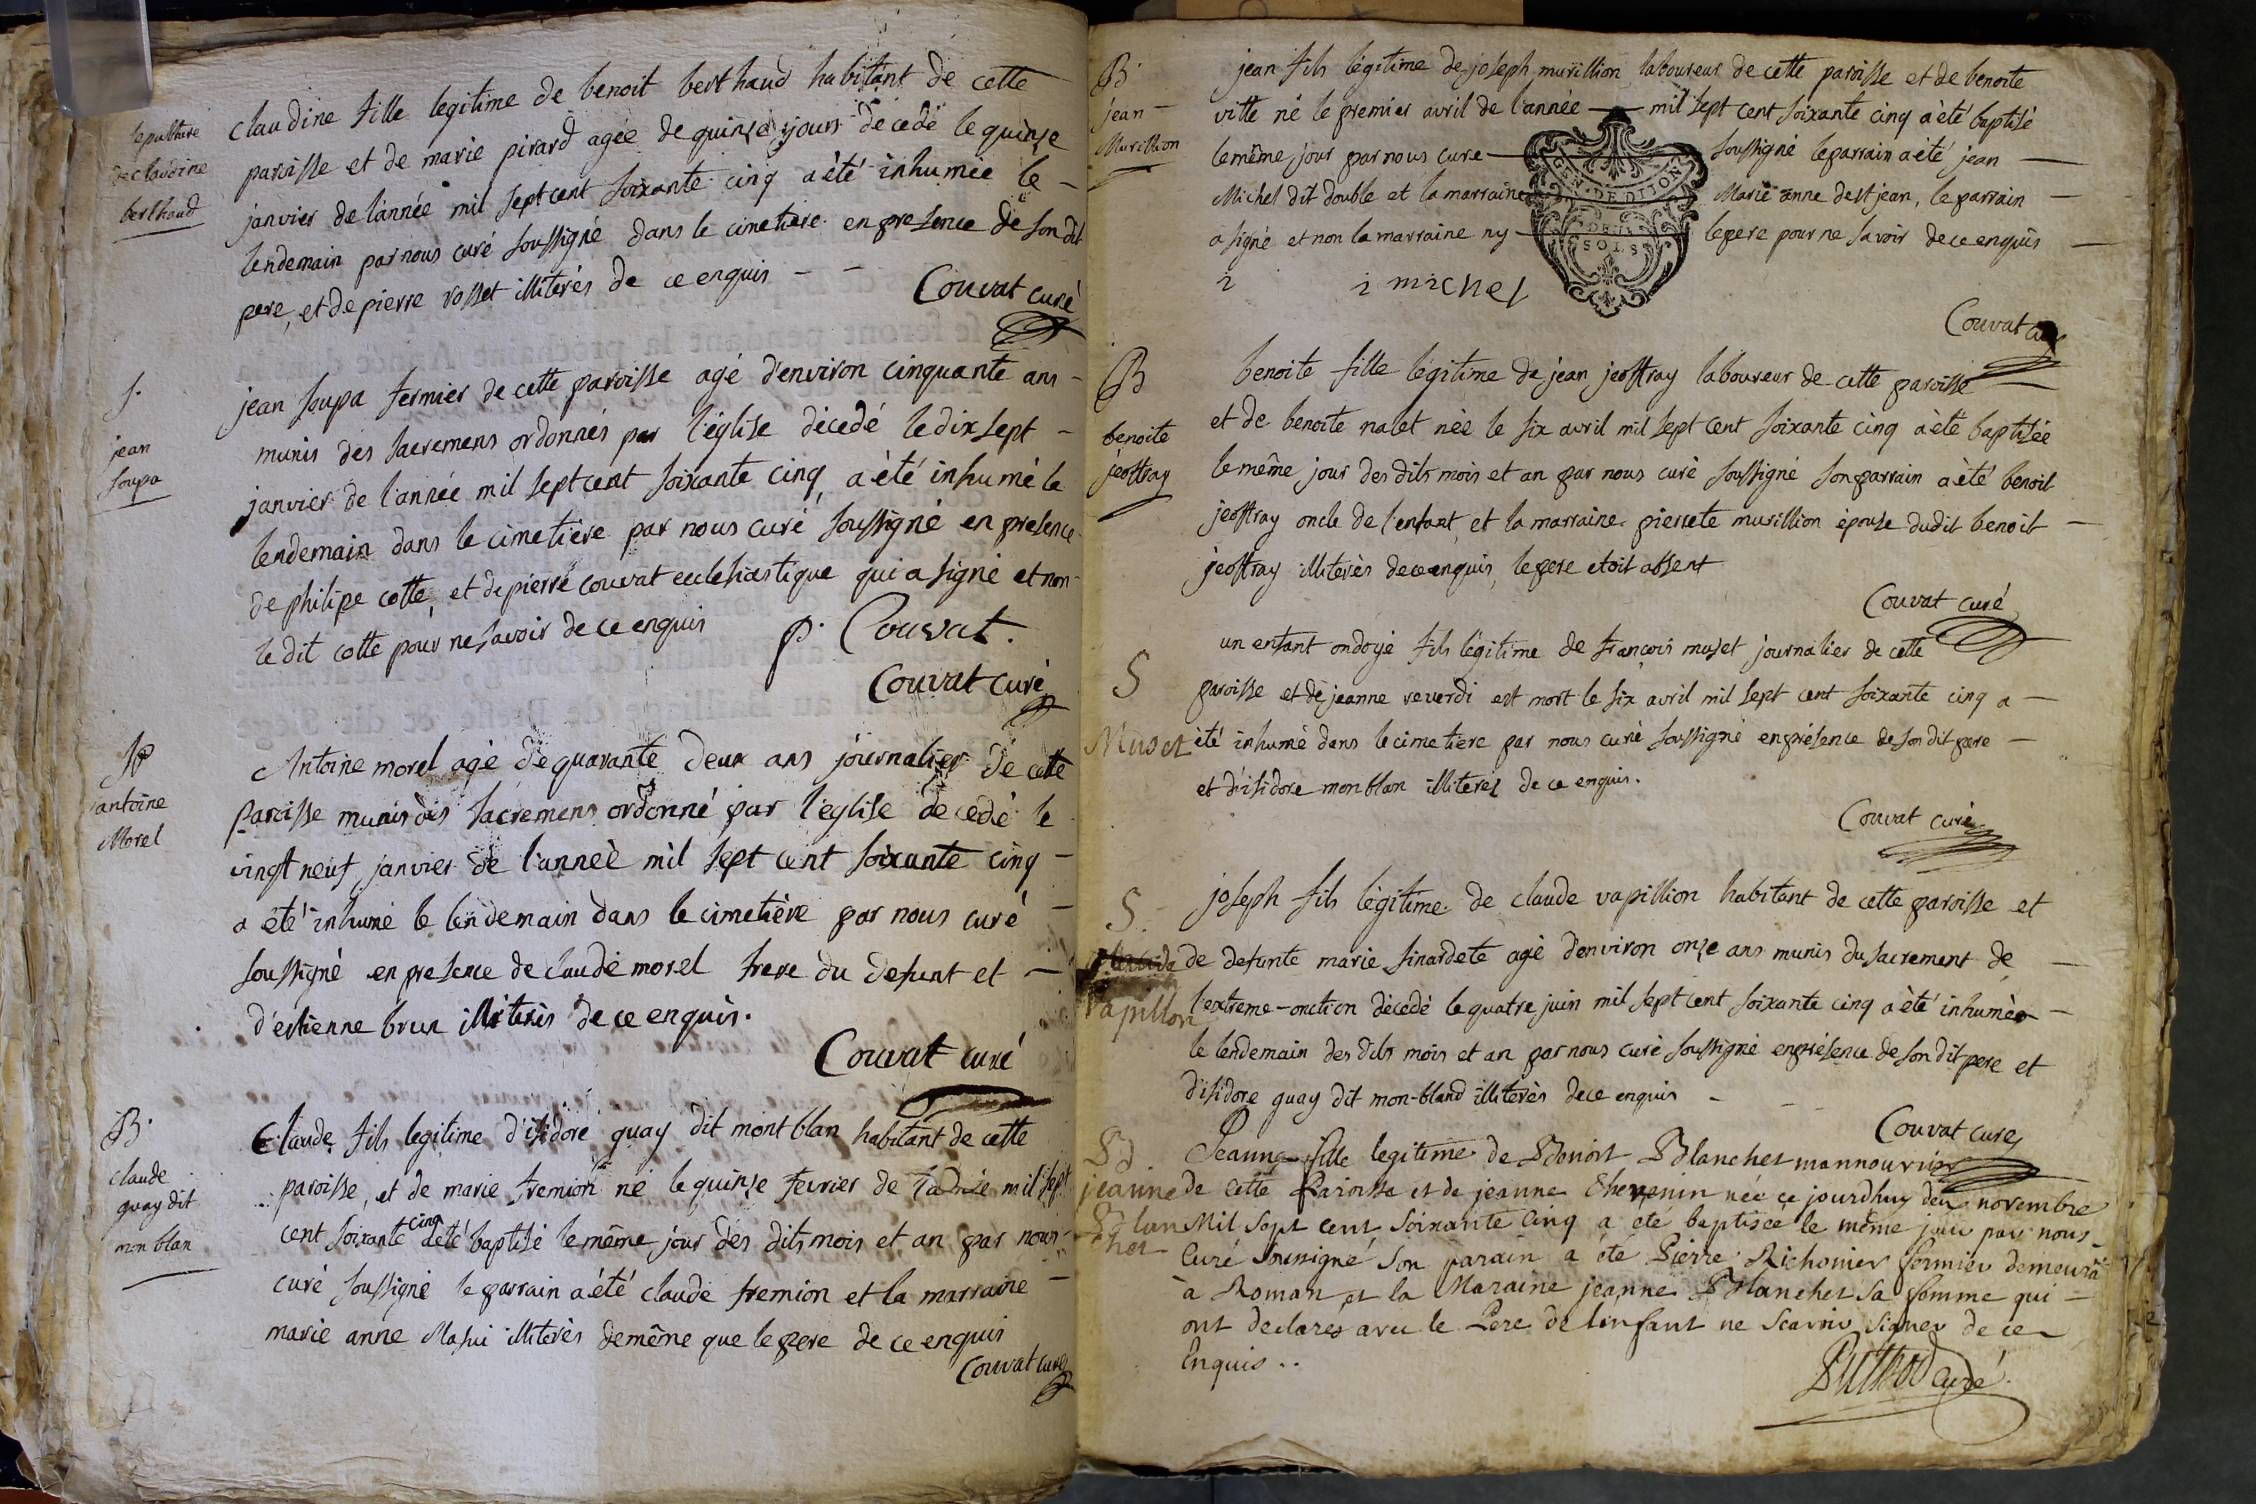 sepulture
de claudine
berthaud
claudine fille legitime de benoit berthaud habitant de cette
paroisse et de marie pirard agée de quinse jours décédé le quinse
janvier de l'année mil sept cent soixante cinq a été inhumée le -
lendemain par nous curé soussigné dans le cimetiere en presence de son dit
pere, et de pierre rosset illiterés de ce enquis - -
Couvat curé
s.
jean
soupa
jean soupa fermier de cette paroisse agé d'environ cinquante ans -
munis des sacremens ordonnés par l'église décedé le dix sept -
janvier de l'année mil sept cent soixante cinq, a été inhumé le
lendemain dans le cimetière par nous curé soussigné en presence
de philipe cotte, et de pierre couvat ecclesiastique qui a signé et non
le dit cotte pour ne savoir de ce enquis
p. Couvat.
Couvat curé
Sp
antoine
Morel
Antoine morel agé de quarante deux ans journalier de cette
paroisse munis des sacremens ordonné par l'église decedé le
vingt neuf janvier de l'année mil sept cent soixante cinq -
a été inhumé le lendemain dans le cimetière par nous curé -
soussigné en presence de claude morel frere du defunt et -
d'estienne brun illiterés de ce enquis.
Couvat curé
B.
claude
quay dit
mon blan
Claude fils legitime d'isidore quay dit mont blan habitant de cette
paroisse, et de marie fremion né le quinse fevrier de l'année mil sept
cent soixante cinq a été baptisé le même jour des dits mois et an par nous
curé soussigné le parrain a été claude fremion et la marraine -
marie anne Masui illiterés de même que le pere de ce enquis
Couvat curé
B
jean -
Murillion
jean fils légitime de joseph murillion laboureur de cette paroisse et de benoite
vitte né le premier avril de l'année - mil sept cent soixante cinq a été baptisé
le même jour par nous curé - soussigné le parrain a été jean -
Michel dit double et la marraine Marie anne de st jean, le parrain -
a signé et non la marraine ny - le pere pour ne savoir de ce enquis -
GEN. DE DIJON
DEUX
SOLS
i i michel
Couvat curé
B
benoite
jeoffray
benoite fille légitime de jean jeoffray laboureur de cette paroisse -
et de benoite nalet née le six avril mil sept cent soixante cinq a été baptisée
le même jour des dits mois et an par nous curé soussigné son parrain a été benoit
jeoffray oncle de l'enfant, et la marraine pierrete murillion épouse dudit benoit -
jeoffray illiterés de ce enquis, le pere etoit absent
Couvat curé
S
Muset
un enfant ondoyé fils légitime de françois muset journalier de cette
paroisse et de jeanne reverdi est mort le six avril mil sept cent soixante cinq a -
été inhumé dans le cimetiere par nous curé soussigné en présence de son dit pere -
et d'isidore mon blan illiterés de ce enquis.
Couvat curé
S.
Vapillon
joseph fils légitime de claude vapillion habitant de cette paroisse et
de defunte marie sinardete agé d'environ onze ans munis du sacrement de -
l'extreme-onction décédé le quatre juin mil sept cent soixante cinq a été inhumé -
le lendemain des dits mois et an par nous curé soussigné en présence de son dit pere et
d'isidore quay dit mon-bland illiterés de ce enquis - - -
Couvat curé
Bd.
jeanne
Blan
chet
Jeanne fille legitime de Benoist Blanchet mannouvrier
de cette Paroisse et de jeanne Thevenin née ce jourdhuy deux novembre
Mil sept cent soixante cinq a été baptisée le même jour par nous
Curé soussigné son parain a été Pierre Richonier fermier demeurant
à Roman et la Maraine jeanne Blanchet sa femme qui -
ont declarés avec le Pere de lenfant ne scavoir signer de ce
Enquis..
Buthod curé